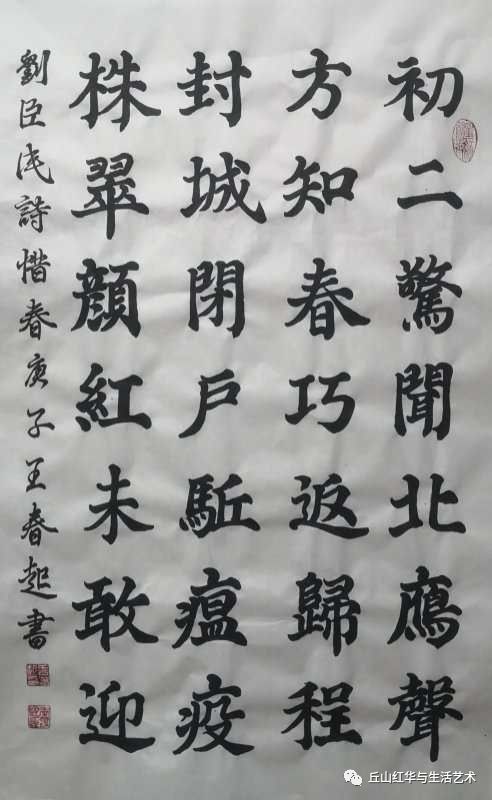 初二驚聞北鴈聲
方知春巧返歸程
封城閉戶駈瘟疫
株翠顔紅未敢迎
劉臣民詩惜春庚子王春起書
丘山红华与生活艺术